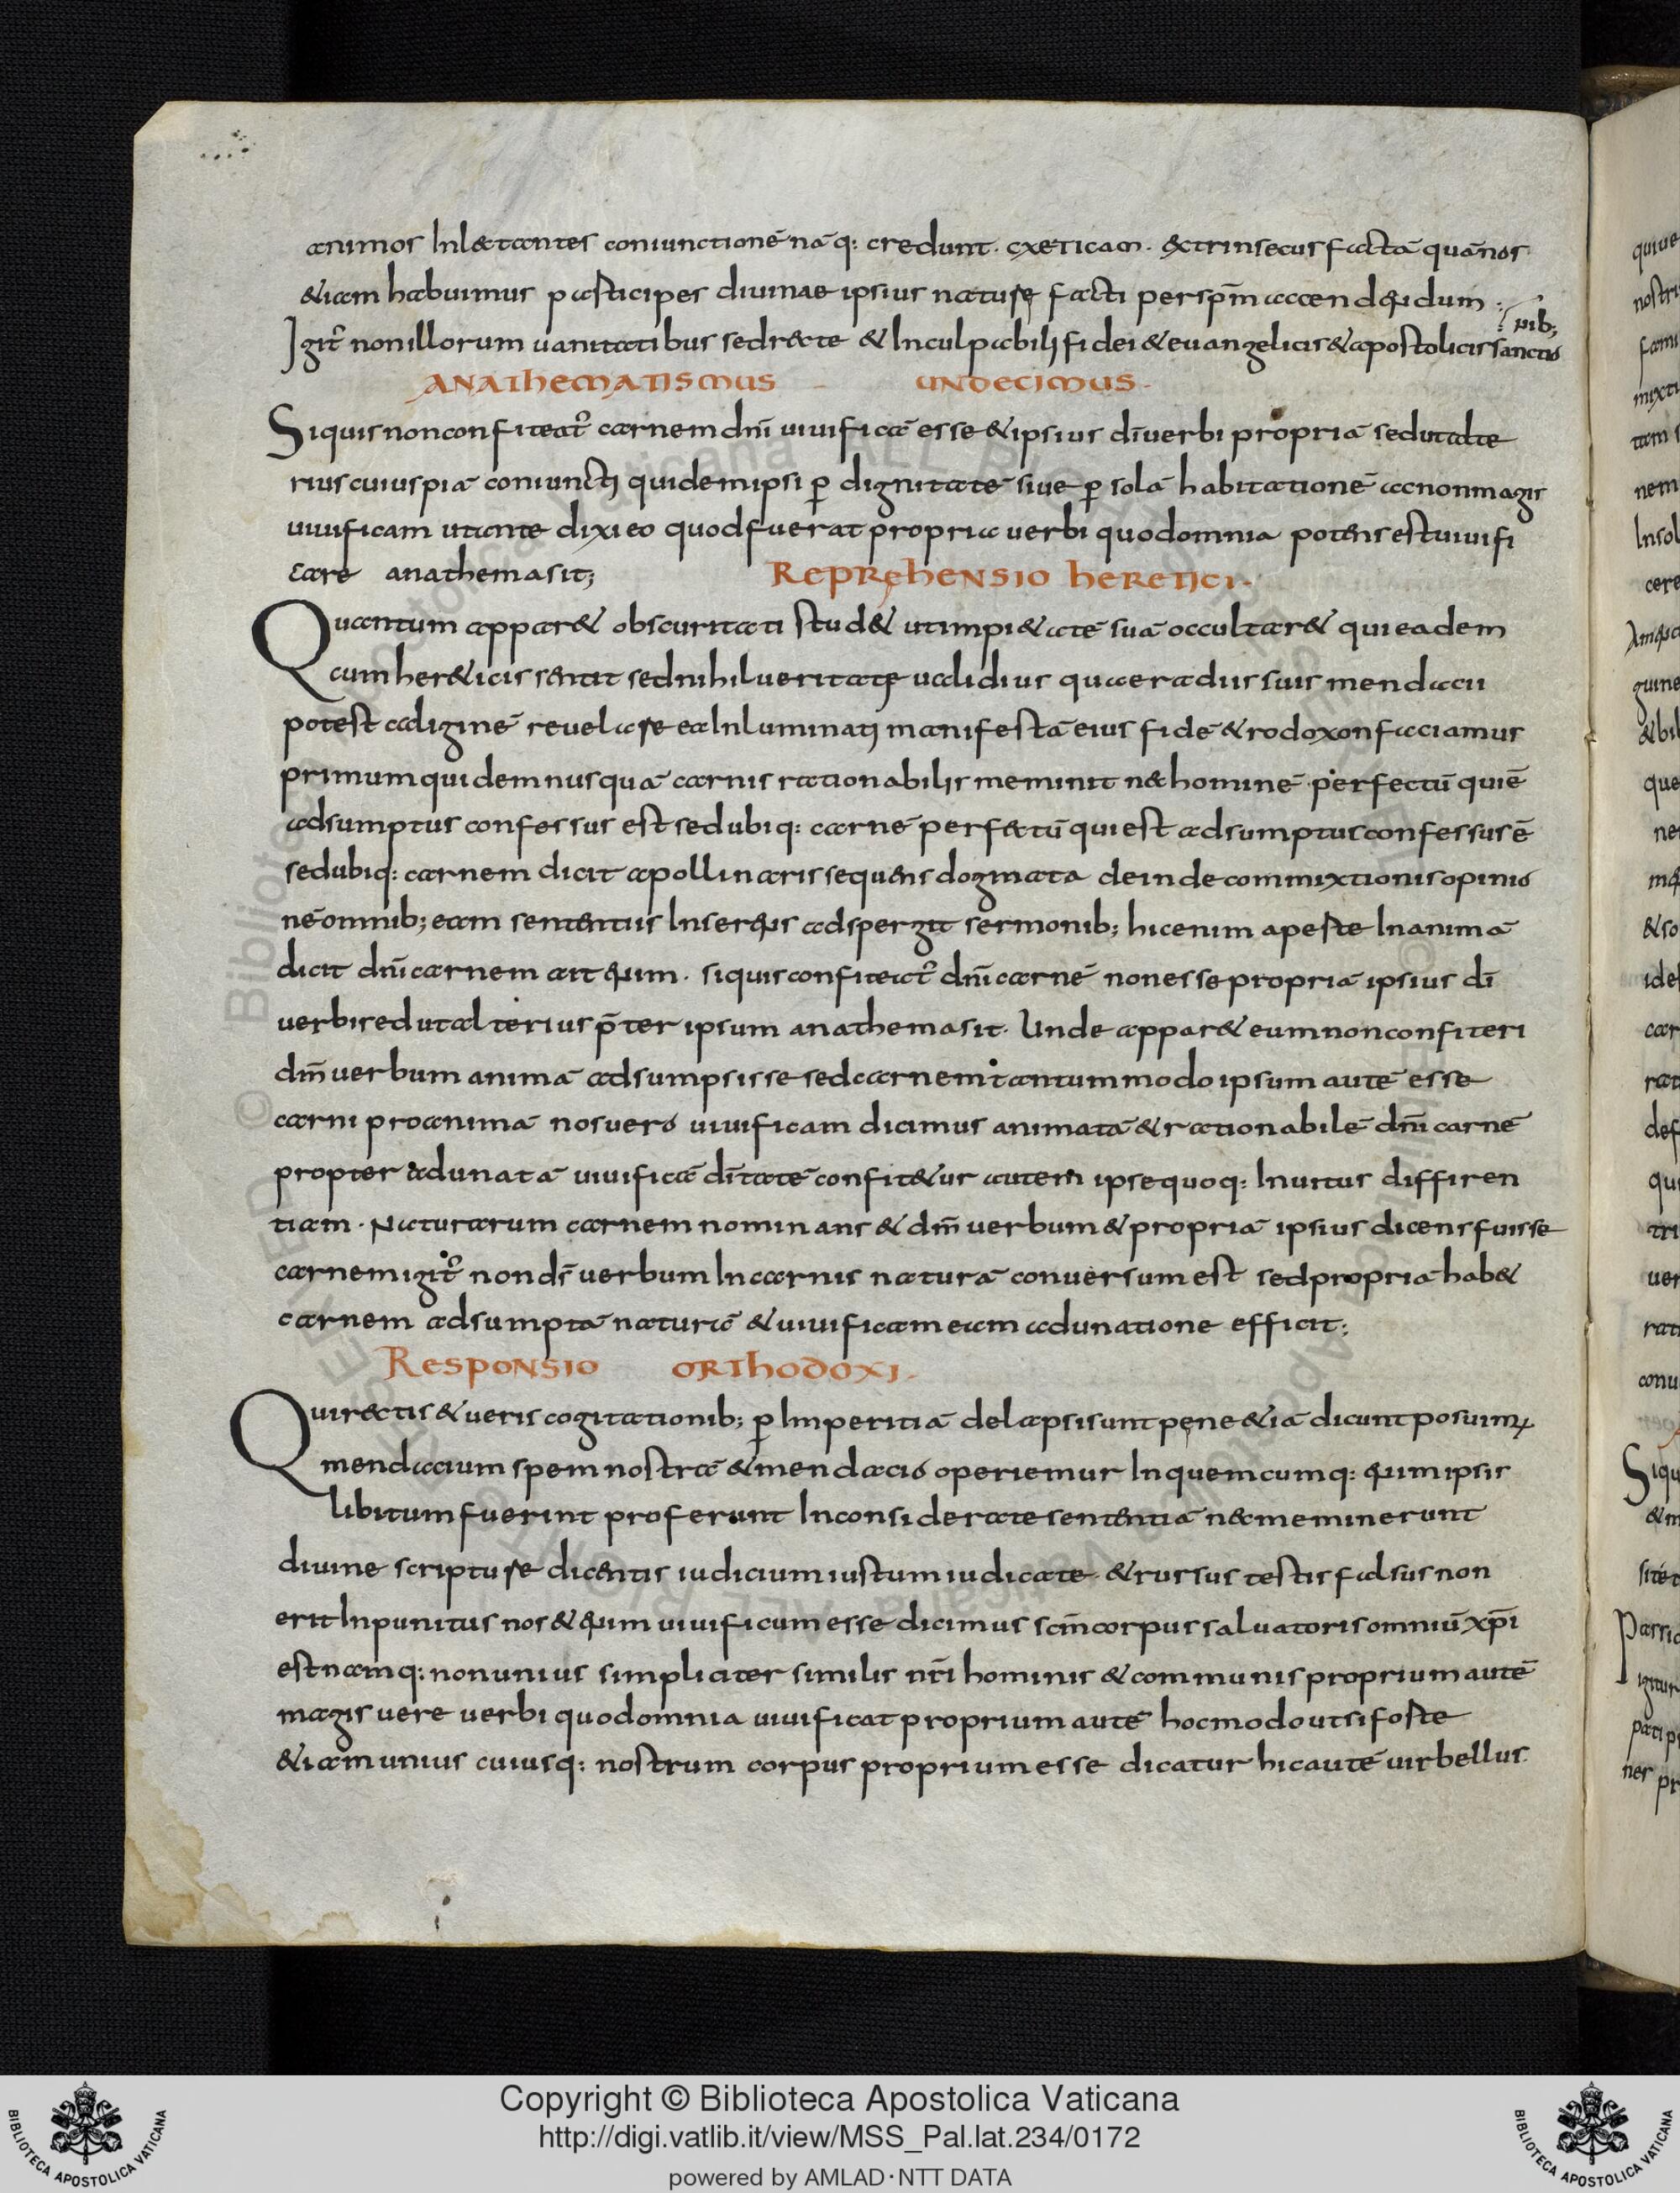 animos Inlectantes coniunctionē nāq: credunt. exeticam. extrinsecus factā quā nos
& iam habuimus participes diuinae ipsius nature facti per spm̄ accendendum.
Igit̄ non illorum uanitatibus sed recte & Inculpabili fidei & euangelicis & apostolicis sanctis
rib;
ANAThEMATISMUS UNDECIMUS.
Si quis non confiteat̄ carnem dnī uiuificā esse & ipsius dī uerbi propriā sed ut alte
rius cuiuspiā coniuncti quidem ipsi ꝑ dignitatē siue ꝑ solā habitationē ac non magis
uiuificam ut ante dixi eo quod fuerat propria uerbi quod omnia potens est uiuifi
care anathema sit;
REPREhENSIO hERETICI.
Quantum apparet obscuritati stud& ut impi&atē suā occultar& qui eadem
cum her&icis sentit sed nihil ueritate ualidius quae radiis suis mendacii
potest caliginē reuelare ea Inluminati manifestā eius fidē &rodoxon faciamus
primum quidem nusquā carnis rationabilis meminit nec hominē perfectū qui ē
adsumptus confessus est sed ubiq: carnē perfectū qui est adsumptus confessus ē
sed ubiq: carnem dicit apollinaris sequens dogmata deinde commixtionis opinio
nē omnib; eam sententiis Insertis adspergit sermonib; hic enim apeste Inanimā
dicit dnī carnem ait enim. si quis confiteat̄ dnī carnē non esse propriā ipsius dī
uerbi sed ut alterius p̄ter ipsum anathema sit. Unde appar& eum non confiteri
dm̄ uerbum animā adsumpsisse sed carnem tantummodo ipsum autē esse
carni pro animā nos uero uiuificam dicimus animatā & rationabilē dnī carnē
propter adunatā uiuificā dītatē confit&ur autem ipse quoq: Inuitus diffiren
tiam. Naturarum carnem nominans & dm̄ uerbum & propriā ipsius dicens fuisse
carnem igit̄ non ds̄ uerbum In carnis naturā conuersum est sed propriā hab&
carnem adsumptā naturā & uiuificam eam adunatione efficit;
RESPONSIO ORThODOXI.
Qui rectis & ueris cogitationib; ꝑ Imperitiā delapsi sunt pene &iā dicunt posuim;
mendacium spem nostrā & mendacio operiemur In quemcumq: enim ipsis
libitum fuerint proferunt Inconsiderate sententiā nec meminerunt
diuine scripture dicentis iudicium iustum iudicate & rursus testis falsus non
erit Inpunitus nos &enim uiuificum esse dicimus scm̄ corpus saluatoris omniū xp̄i
est namq: non unius simpliciter similis nr̄i hominis & communis proprium autē
magis uere uerbi quod omnia uiuificat proprium autē hoc modo ut si foste
&iam unius cuiusq: nostrum corpus proprium esse dicatur hic autē uir bellus
Copyright © Biblioteca Apostolica Vaticana
http://digi.vatlib.it/view/MSS_Pal.lat.234/0172
powered by AMLAD·NTT DATA
BIBLIOTECA APOSTOLICA VATICANA
BIBLIOTECA APOSTOLICA VATICANA